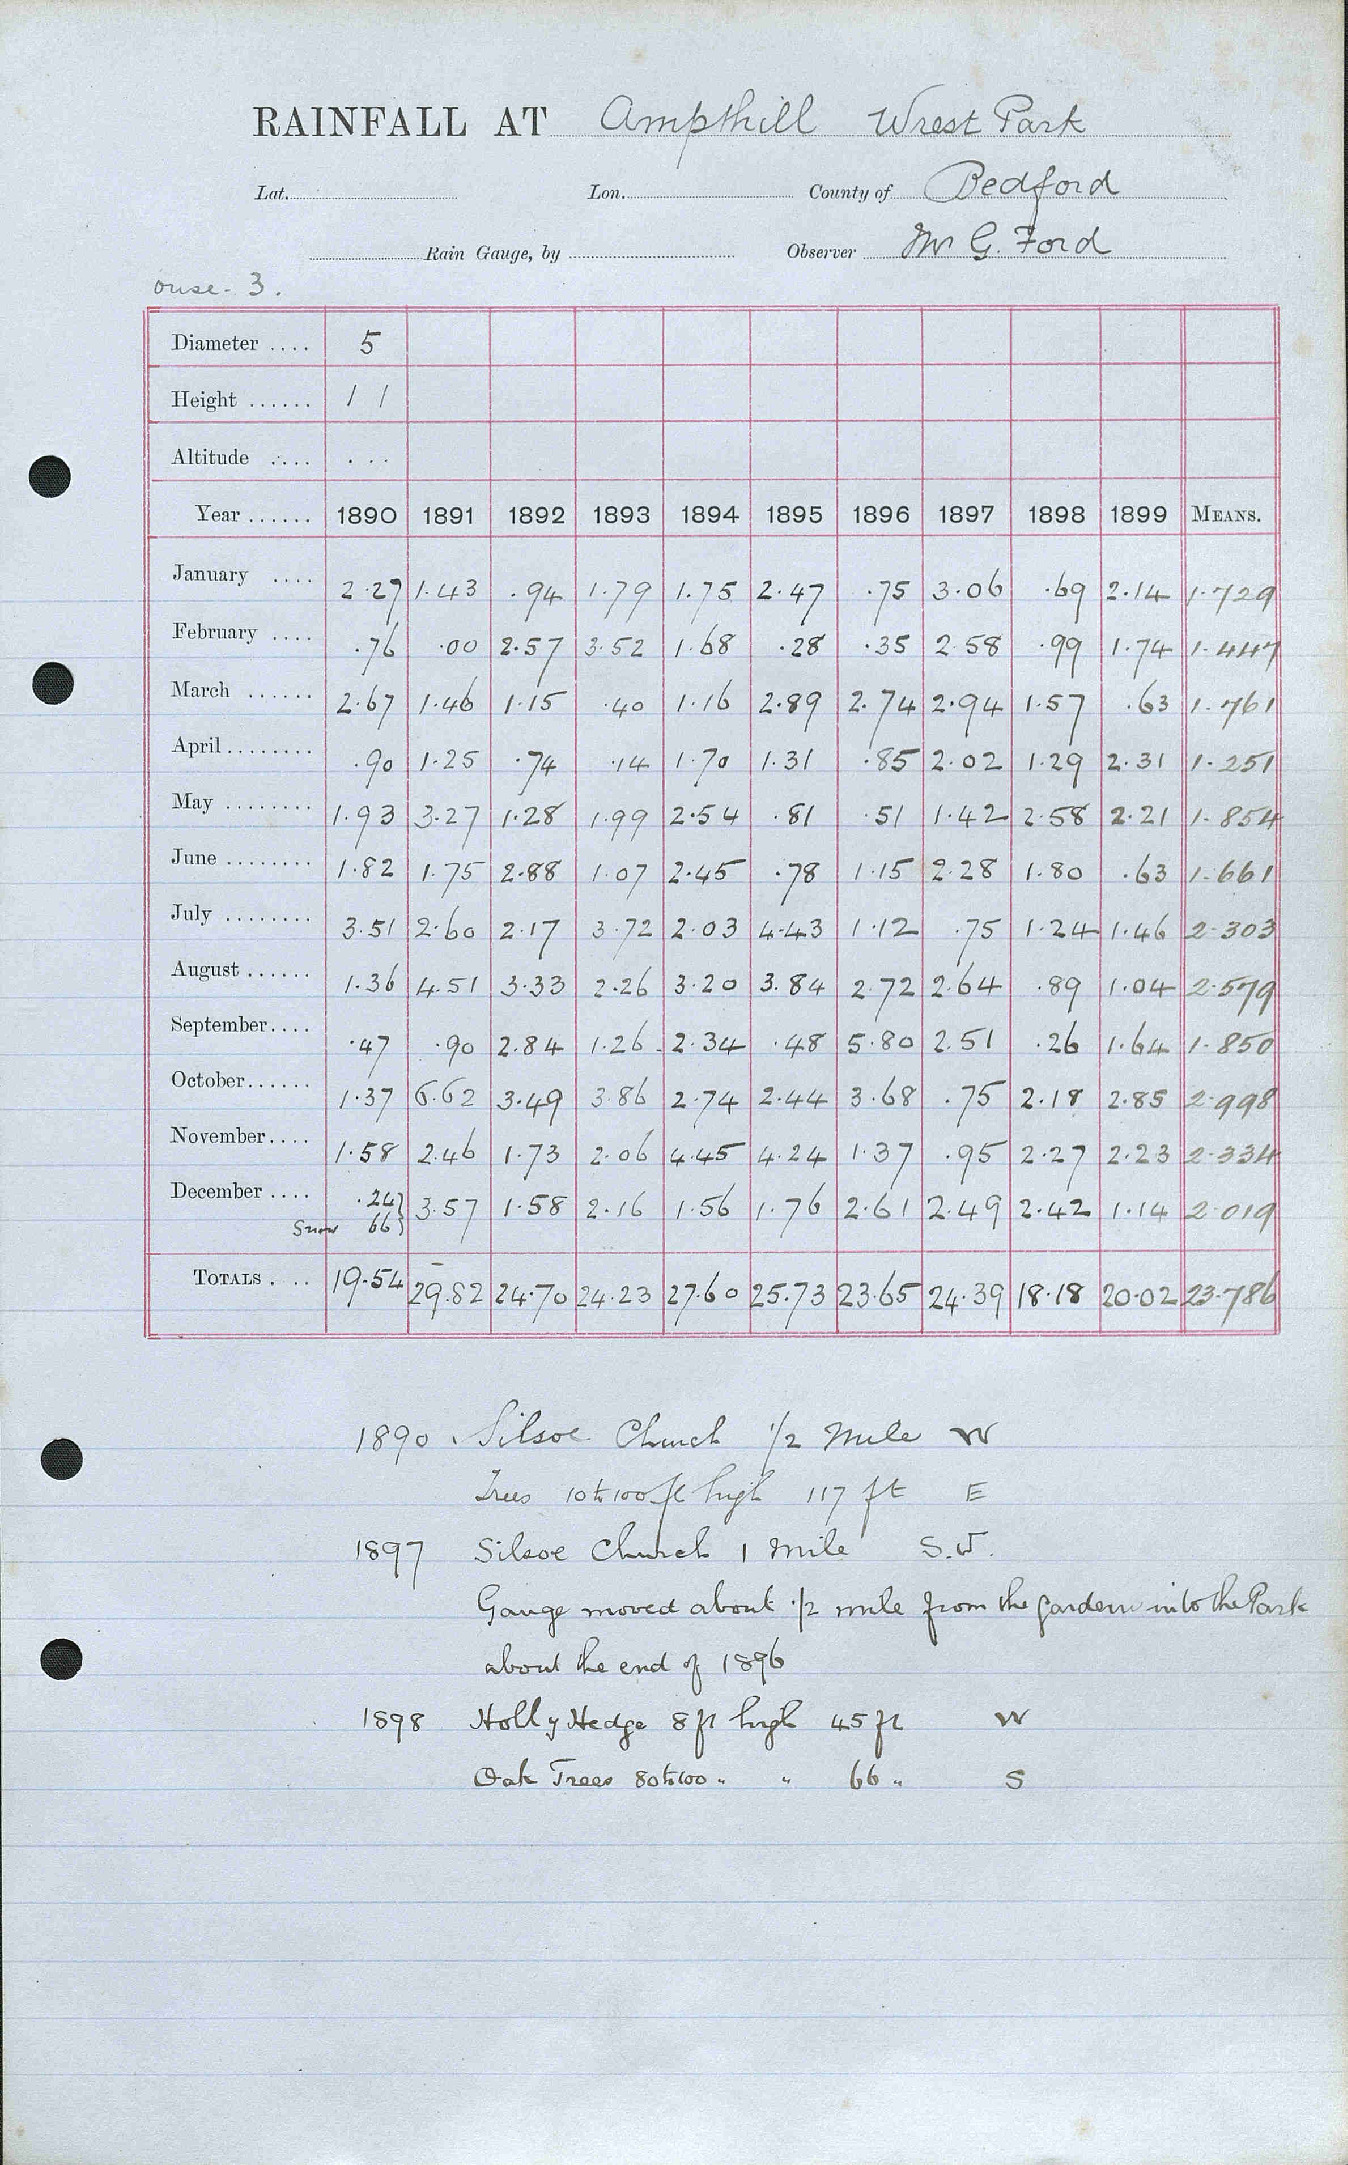 RAINFALL AT Ampthill Wrest Park
Lat. Lon. County of Bedford
Rain Gauge, by Observer Mr G. Ford
Ouse - 3.
Diameter .... 5
Height ...... 1 1
Altitude .... ...
Year ...... 1890 1891 1892 1893 1894 1895 1896 1897 1898 1899 MEANS.
January .... 2.27 1.43 .94 1.79 1.75 2.47 .75 3.06 .69 2.14 1.729
February .... .76 .00 2.57 3.52 1.68 .28 .35 2.58 .99 1.74 1.447
March ...... 2.67 1.46 1.15 .40 1.16 2.89 2.74 2.94 1.57 .63 1.761
April ........ .90 1.25 .74 .14 1.70 1.31 .85 2.02 1.29 2.31 1.251
May ........ 1.93 3.27 1.28 1.99 2.54 .81 .51 1.42 2.58 2.21 1.854
June ........ 1.82 1.75 2.88 1.07 2.45 .78 1.15 2.28 1.80 .63 1.661
July ........ 3.51 2.60 2.17 3.72 2.03 4.43 1.12 .75 1.24 1.46 2.303
August ...... 1.36 4.51 3.33 2.26 3.20 3.84 2.72 2.64 .89 1.04 2.579
September.... .47 .90 2.84 1.26 2.34 .48 5.80 2.51 .26 1.64 1.850
October...... 1.37 6.62 3.49 3.86 2.74 2.44 3.68 .75 2.18 2.85 2.998
November.... 1.58 2.46 1.73 2.06 4.45 4.24 1.37 .95 2.27 2.23 2.334
December .... .24} 3.57 1.58 2.16 1.56 1.76 2.61 2.49 2.42 1.14 2.019
Snow 66}
TOTALS . .. 19.54 29.82 24.70 24.23 27.60 25.73 23.65 24.39 18.18 20.02 23.786
1890. Silsoe Church 1/2 Mile W
Trees 10 to 100 ft high 117 ft E
1897 Silsoe Church 1 Mile S.W.
Gauge moved about 1/2 mile from the gardens into the Park
about the end of 1896
1898 Holly Hedge 8 ft high 45 ft W
Oak Trees 80 to 100 " " 66 " S